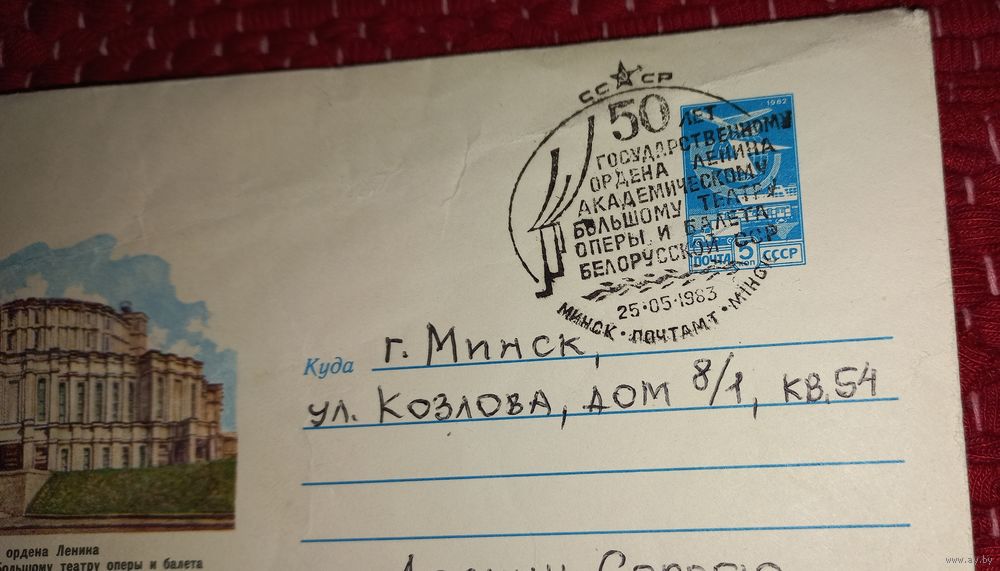 СС СР
50 ЛЕТ
ГОСУДАРСТВЕННОМУ
ОРДЕНА ЛЕНИНА
АКАДЕМИЧЕСКОМУ
БОЛЬШОМУ ТЕАТРУ
ОПЕРЫ И БАЛЕТА
БЕЛОРУССКОЙ ССР
25·05·1983
МИНСК · ПОЧТАМТ · МІНСК
1982
ПОЧТА 5 коп СССР
Куда г. Минск,
ул. Козлова, дом 8/1, кв. 54
ордена Ленина
большому театру оперы и балета
www.ay.by